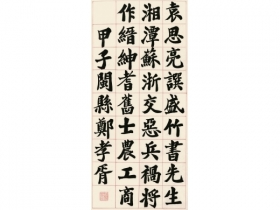 袁思亮譔盛竹書先生
湘潭蘇浙交惡兵禍将
作縉紳耆舊士農工商
甲子閩縣鄭孝胥